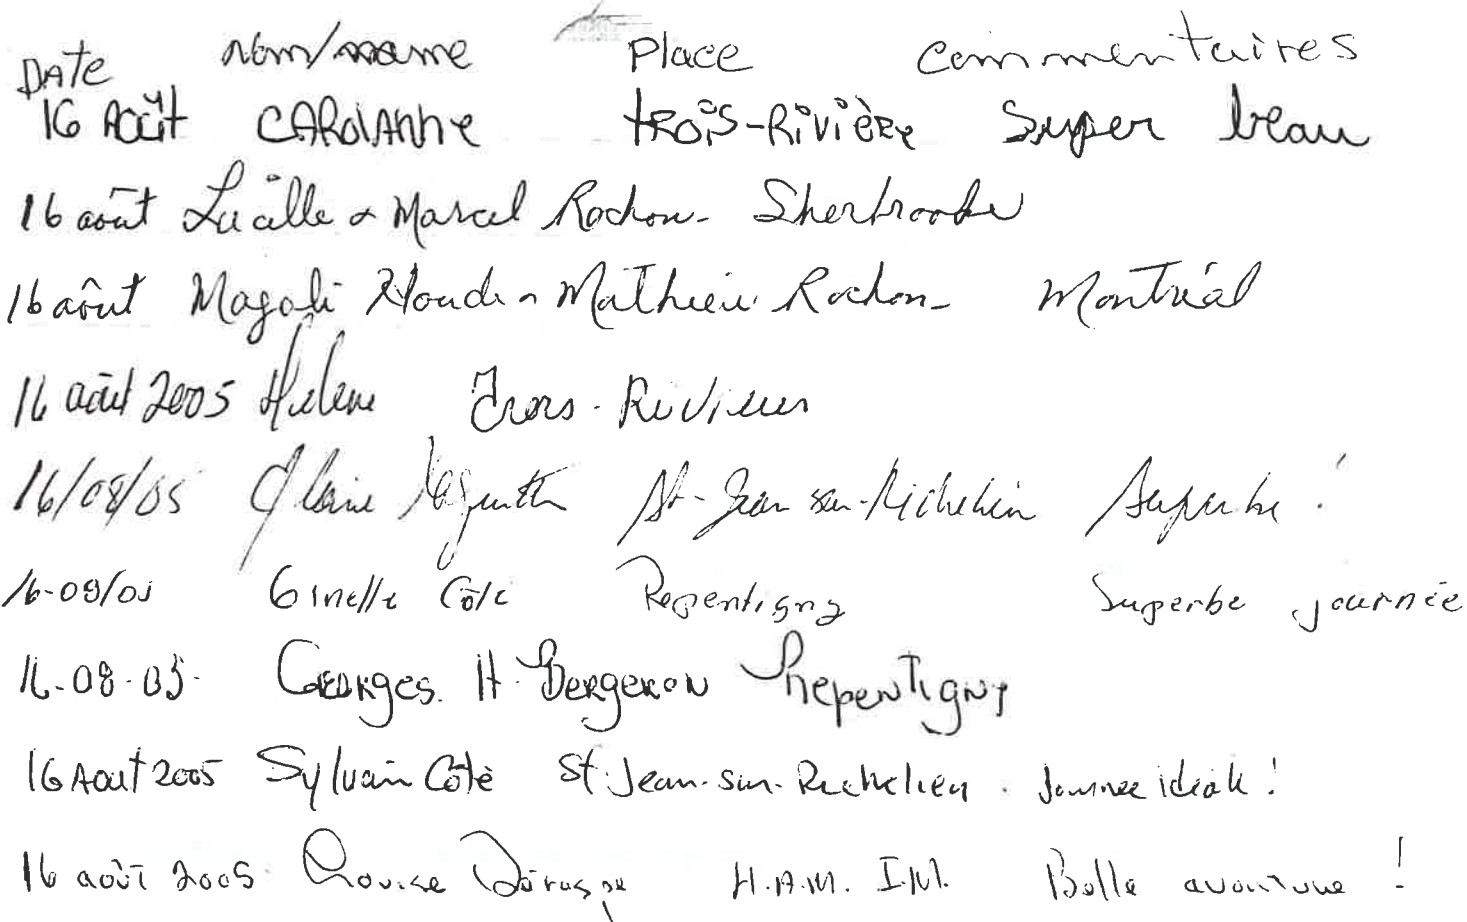 Date nom/name Place commentaires
16 Août CAROlANNE tROiS-RiVièRe Super beau
16 août Lucille & Marcel Rochon - Sherbrooke
16 août Magali Houde & Mathieu Rochon - Montréal
16 août 2005 Hélène Trois-Rivières
16/08/05 St-Jean sur-Richelieu Superbe !
16-08/05 Ginette Côté Repentigny Superbe journée
16-08-05- Georges H. Bergeron Repentigny
16 Aout 2005 Sylvain Côté St-Jean-sur-Richelieu. Journée idéale !
16 août 2005 Louise H.A.M. I.M. Belle aventure !